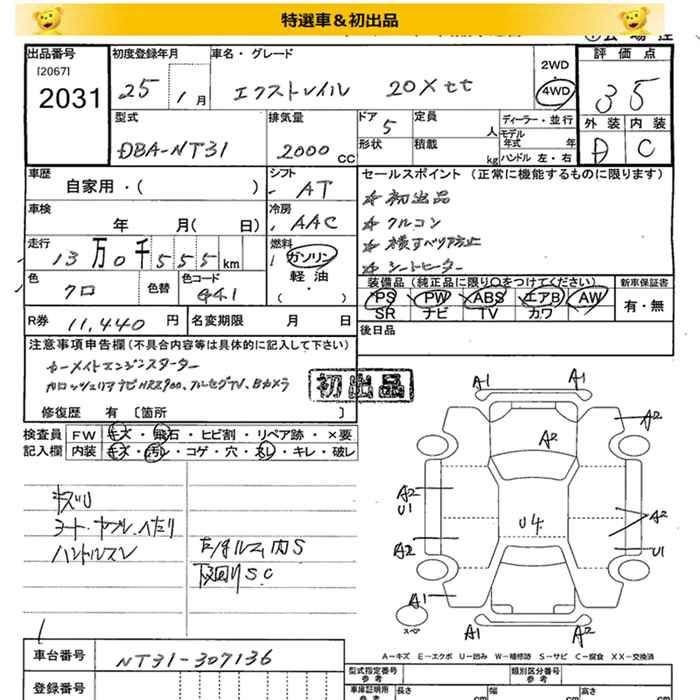 特選車＆初出品
出品番号 初度登録年月 車名・グレード 2WD 評価点
[2067]
2031 25年 1月 エクストレイル 20Xtt 4WD 35
型式 排気量 ドア 定員 ディーラー・並行 外装 内装
5 人 モデル年式 年
DBA-NT31 2000 CC 形状 積載 kg ハンドル 左・右 D C
車歴 シフト セールスポイント (正常に機能するものに限ります)
自家用・( ) AT ☆初出品
車検 冷房 ☆クルコン
年 月( 日) AAC ☆横すべり防止
走行 燃料 ☆シートヒーター
13万0千555km ガソリン
軽油
( ・ )
色 色替 色コード 装備品(純正品に限り○をつけてください) 新車保証書
クロ G41 PS PW ABS エアB AW 有・無
SR ナビ TV カワ
R券 11,440 円 名変期限 月 日 後日品
注意事項申告欄(不具合内容等は具体的に記入して下さい)
カーメイトエンジンスターター
カロッツェリアナビHRZ900、フルセグTV、Bカメラ
初出品
修復歴 有 [箇所 ]
検査員 FW キズ・飛石・ヒビ割・リペア跡・×要
記入欄 内装 キズ・汚レ・コゲ・穴・スレ・キレ・破レ
キズU
シート・ヤブレ・ヘタリ
ハンドルスレ
下回りSC
A1 A1
A2
A2
A2
U1
U4
A2
A2
U1
A1 A1
スペア
A1 A1
A－キズ E－エクボ U－凹み W－補修跡 S－サビ C－腐食 XX－交換済
車台番号 NT31-307136
登録番号
型式指定番号 参考 類別区分番号 参考
車庫証明用 参考 長さ cm 幅 cm 高さ cm